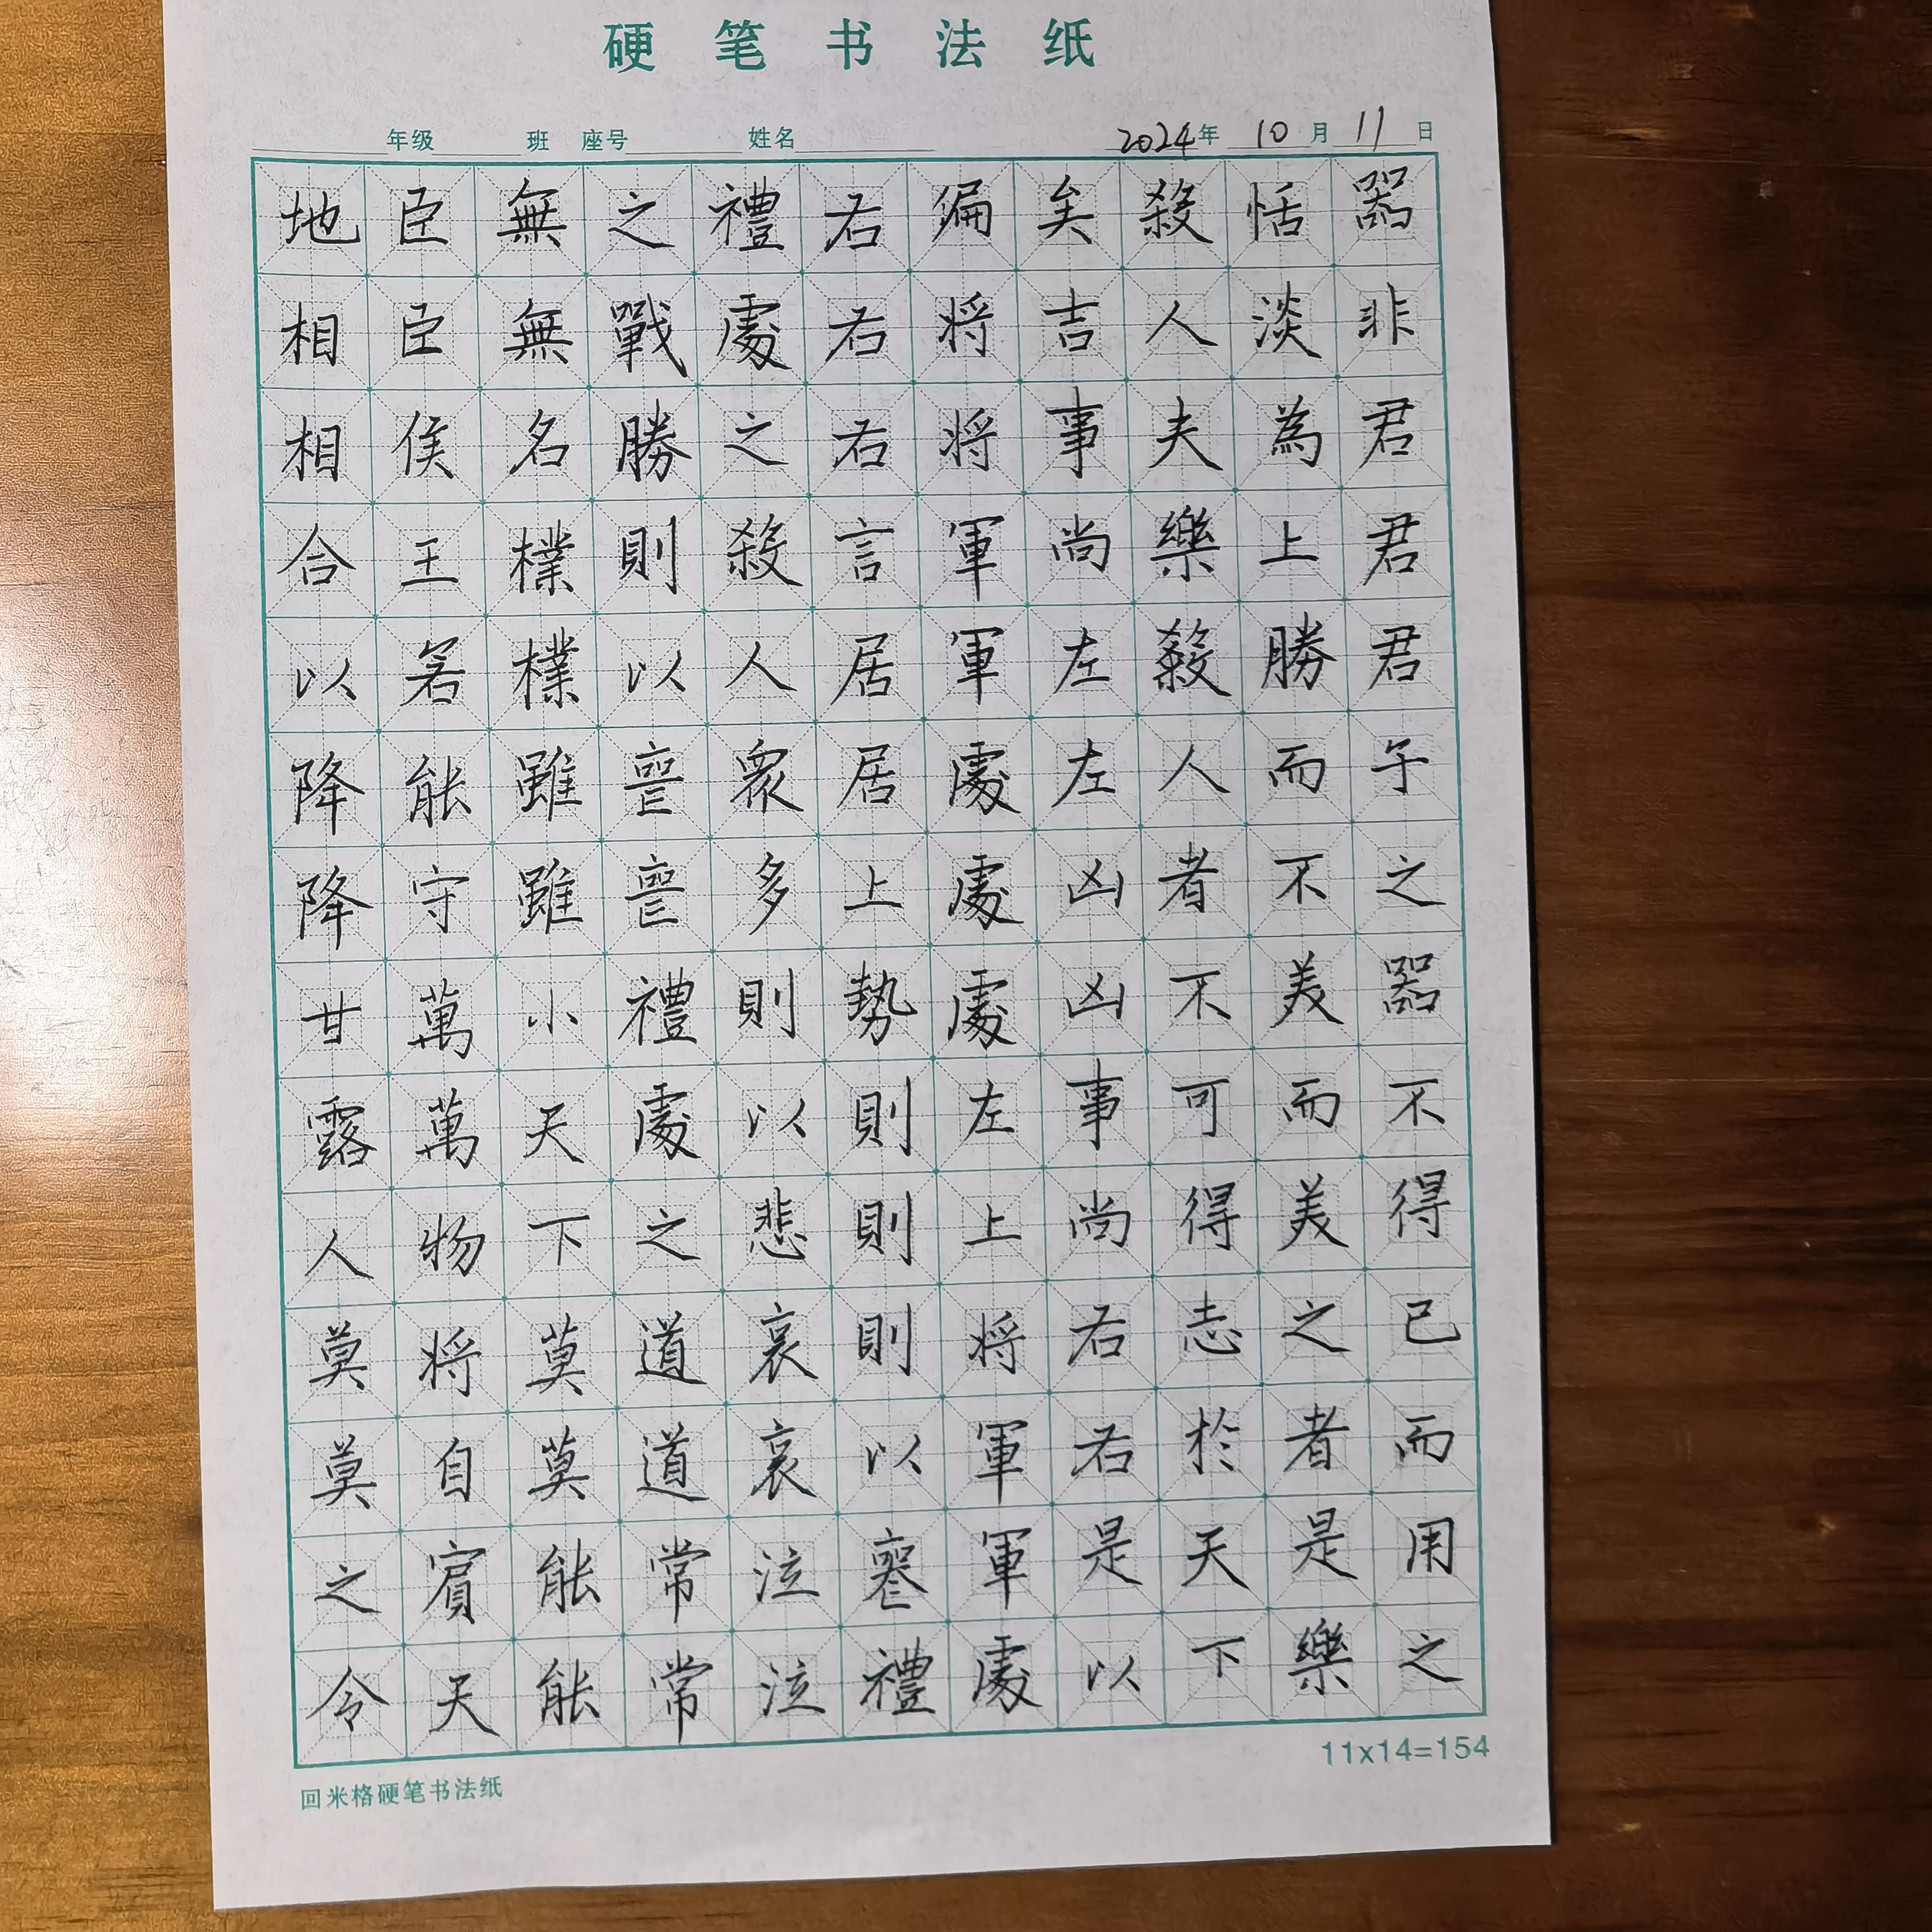 硬笔书法纸
年级 班 座号 姓名 2024年 10月 11日
器非君君君子之器不得已而用之
恬淡為上勝而不美而美之者是樂
殺人夫樂殺人者不可得志於天下
矣吉事尚左左凶凶事尚右右是以
偏将将軍軍處處處左上将軍軍處
右右右言居居上勢則則則以喪禮
禮處之殺人衆多則以悲哀哀泣泣
之戰勝則以喪喪禮處之道道常常
無無名樸樸雖雖小天下莫莫能能
臣臣侯王若能守萬萬物将自賓天
地相相合以降降甘露人莫莫之令
11x14=154
回米格硬笔书法纸